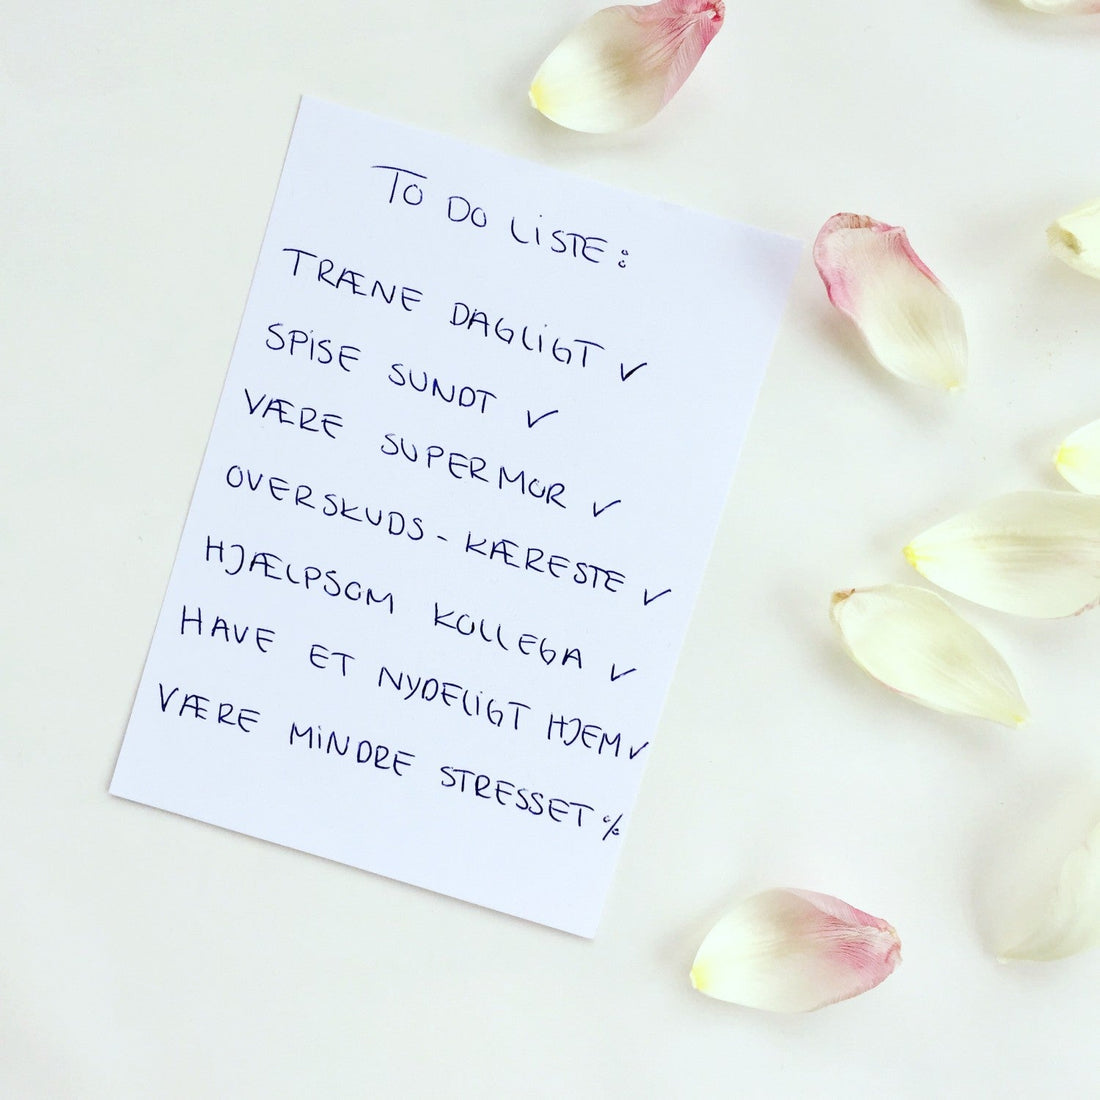 TO DO LiSTE:
TRÆNE DAGLiGT ✓
SPiSE SUNDT ✓
VÆRE SUPERMOR ✓
OVERSKUDS-KÆRESTE ✓
HJÆLPSOM KOLLEGA ✓
HAVE ET NYDELiGT HJEM ✓
VÆRE MiNDRE STRESSET %